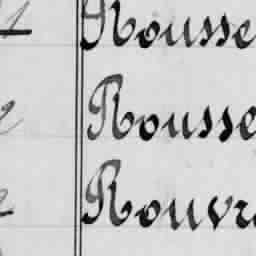 Rousse
Rousse
Rouvr